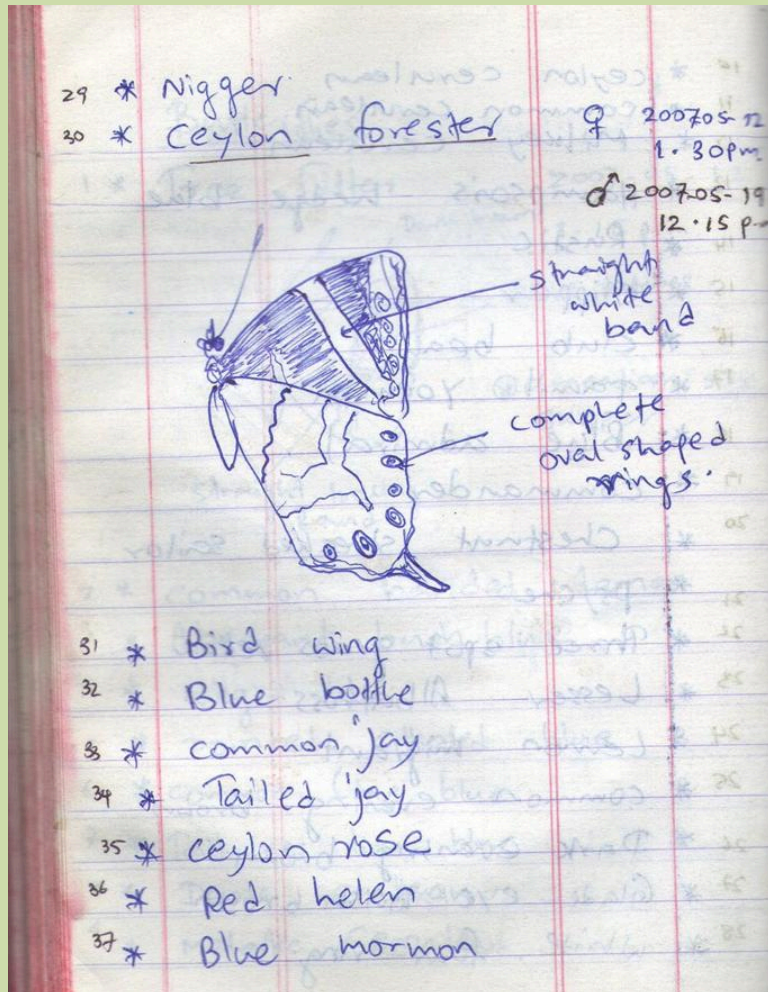 29 * Nigger
30 * Ceylon forester ♀ 2007-05-12
1.30pm
♂ 2007-05-19
12.15 p
straight
white
band
complete
oval shaped
rings.
31 * Bird wing
32 * Blue bottle
33 * common jay
34 * Tailed jay
35 * ceylon rose
36 * Red helen
37 * Blue mormon